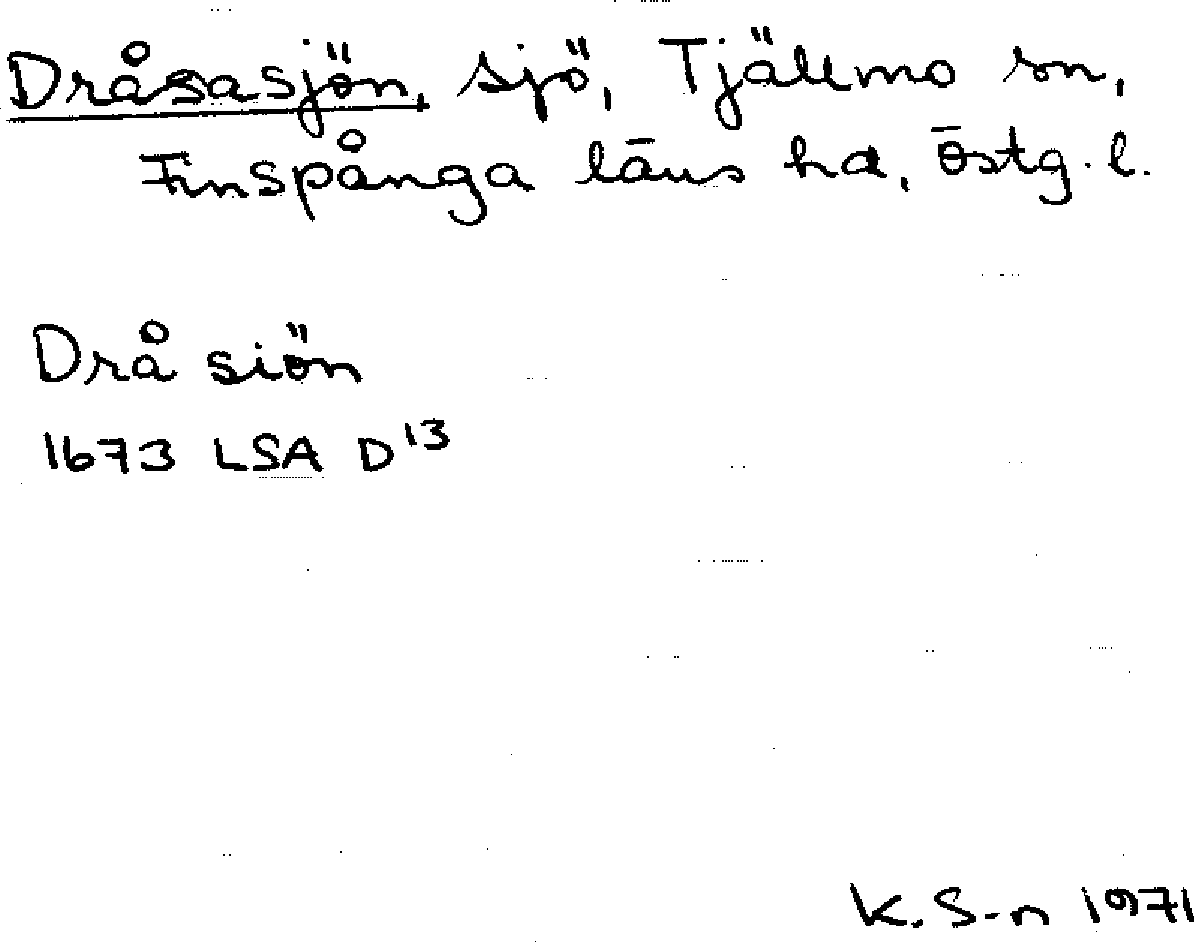 Dråsasjön, sjö, Tjällmo sn,
Finspånga läns hd, Östg. l.
Drå siön
1673 LSA D 13
K. S-n 1971